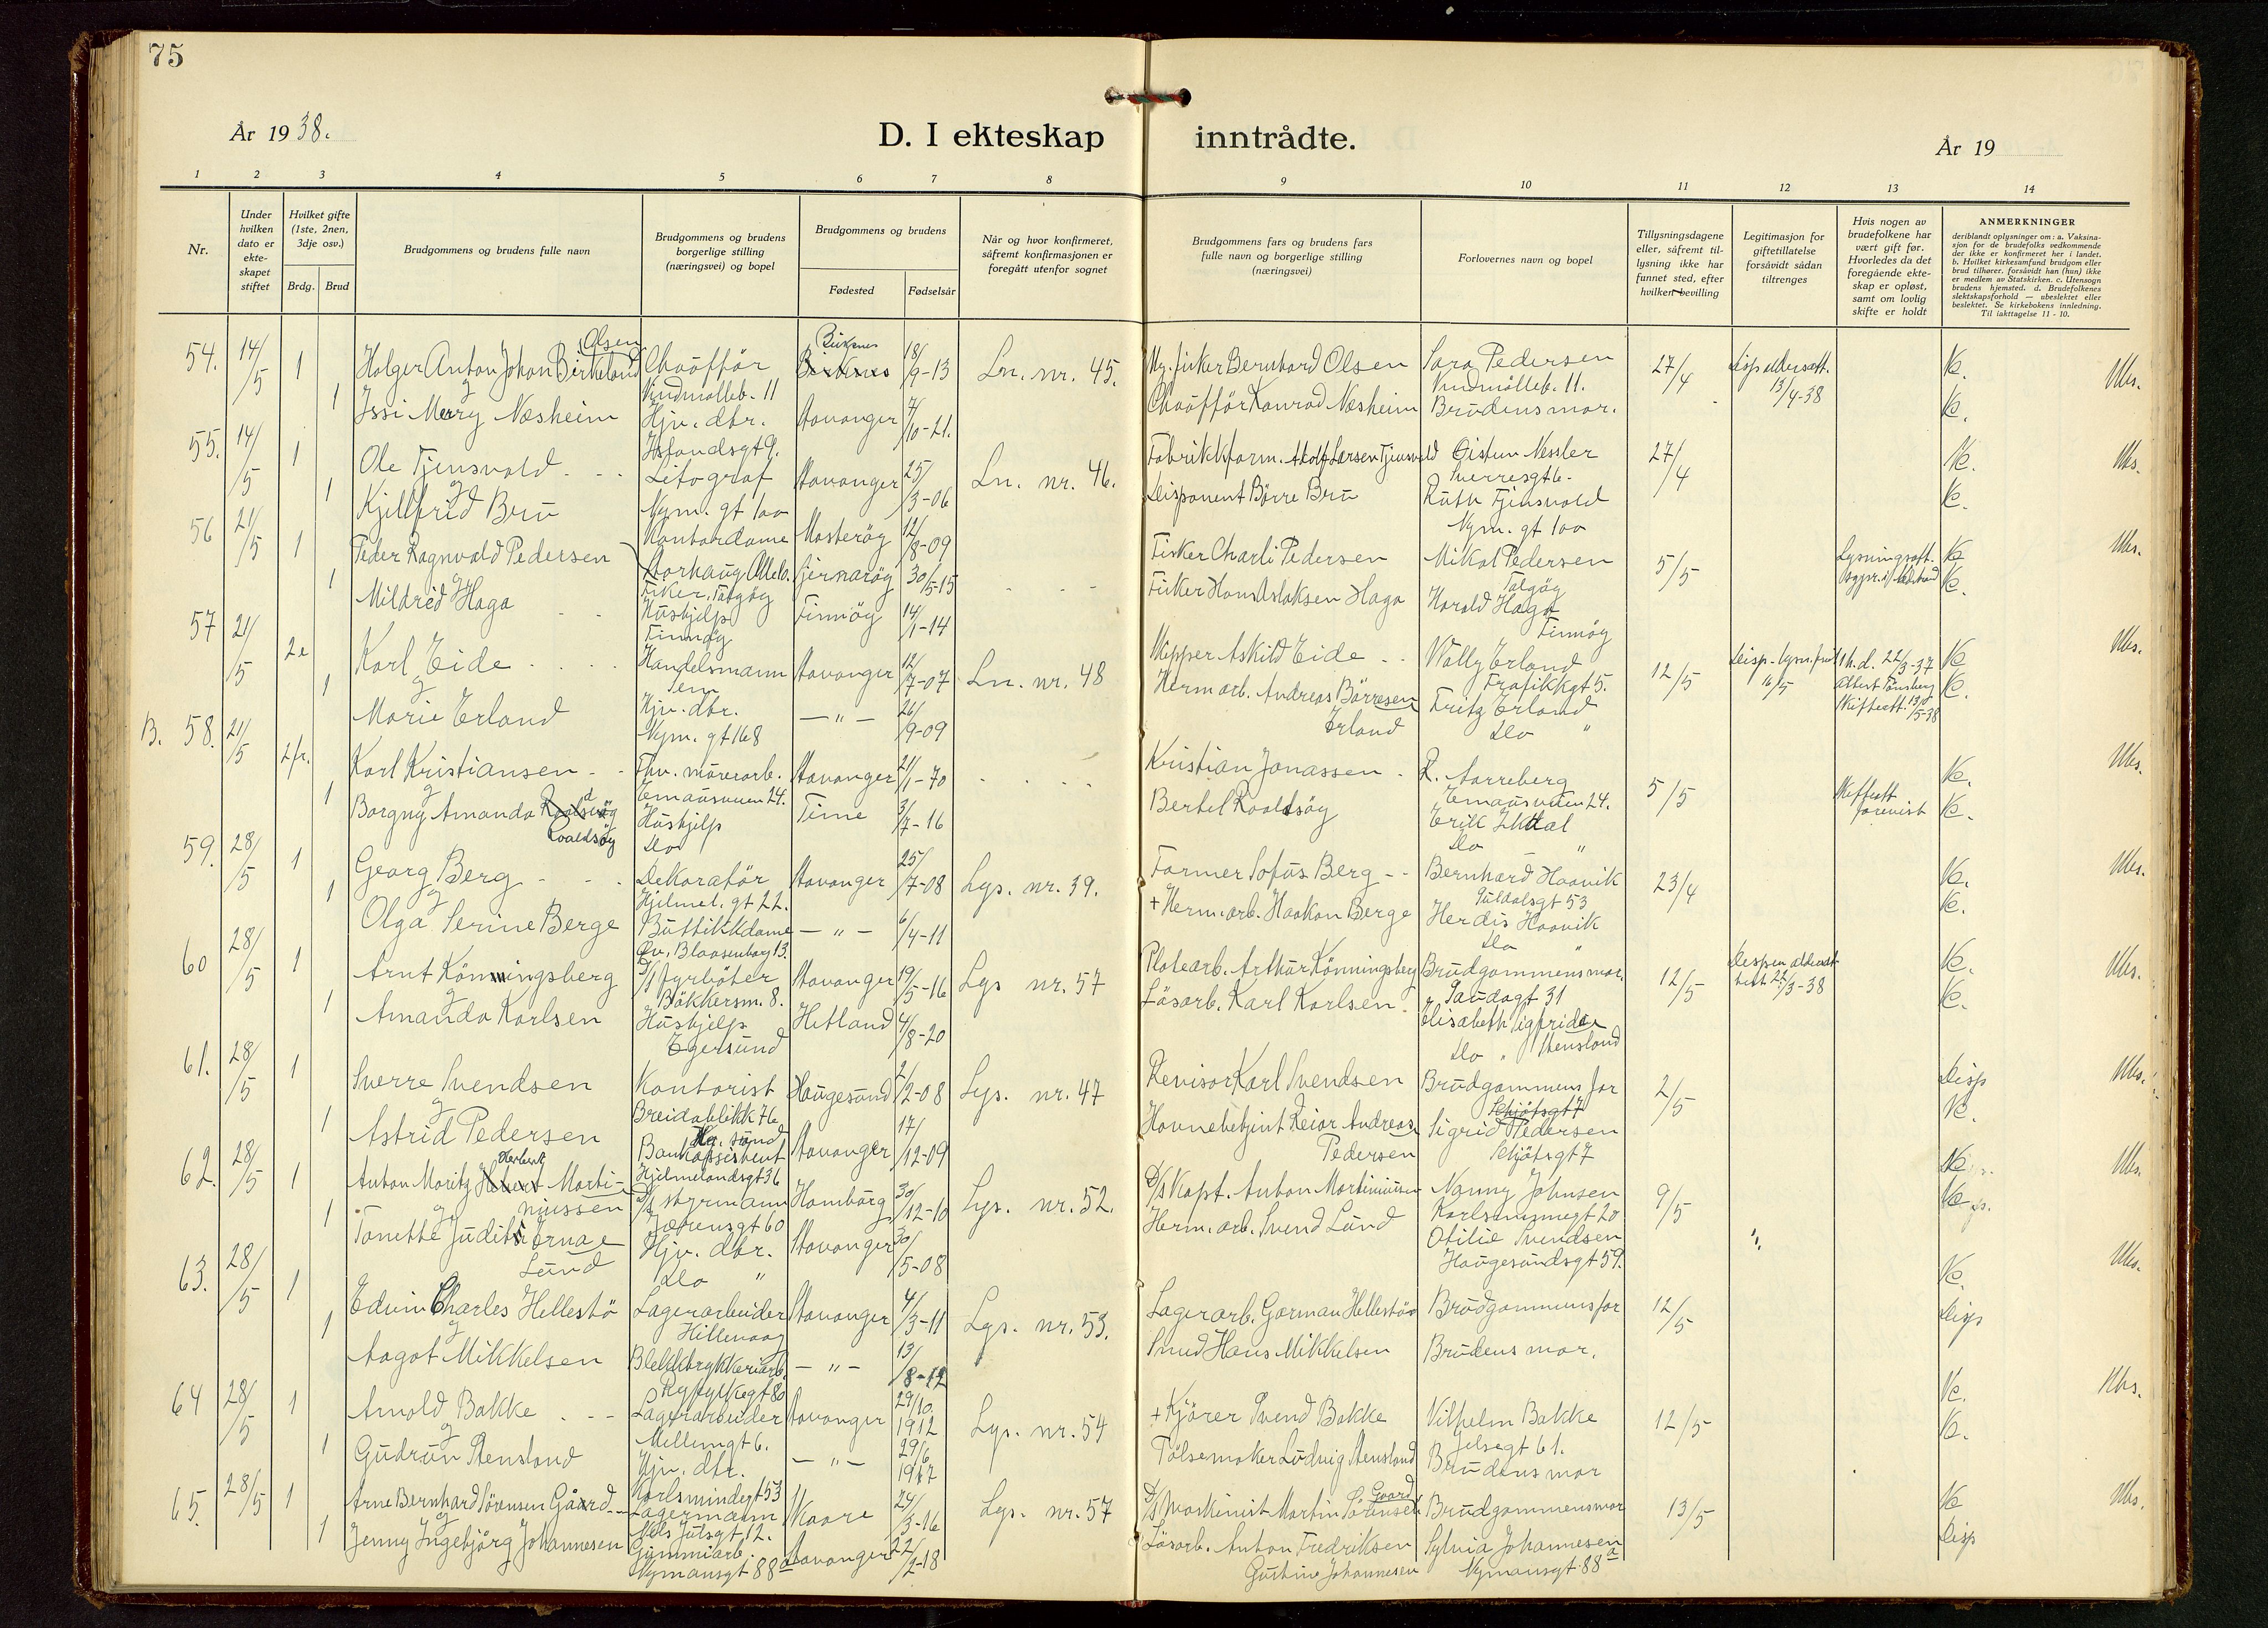 75
År 1938.
D. I ekteskap inntrådte.
År 19
1 2 3 4 5 6 7 8 9 10 11 12 13 14
Nr.
Under hvilken dato er ekteskapet stiftet
Hvilket gifte (1ste, 2nen, 3dje osv.)
Brdg. Brud
Brudgommens og brudens fulle navn
Brudgommens og brudens borgerlige stilling (næringsvei) og bopel
Brudgommens og brudens
Fødested Fødselsår
Når og hvor konfirmeret, såfremt konfirmasjonen er foregått utenfor sognet
Brudgommens fars og brudens fars fulle navn og borgerlige stilling (næringsvei)
Forlovernes navn og bopel
Tillysningsdagene eller, såfremt tillysning ikke har funnet sted, efter hvilken bevilling
Legitimasjon for giftetillatelse forsåvidt sådan tiltrenges
Hvis nogen av brudefolkene har vært gift før. Hvorledes da det foregående ekteskap er opløst, samt om lovlig skifte er holdt
ANMERKNINGER
deriblandt oplysninger om: a. Vaksinasjon for de brudefolks vedkommende der ikke er konfirmeret her i landet. b. Hvilket kirkesamfund brudgom eller brud tilhører, forsåvidt han (hun) ikke er medlem av Statskirken. c. Utensogn brudens hjemsted. d. Brudefolkenes slektskapsforhold — ubeslektet eller beslektet. Se kirkebokens innledning. Til iakttagelse 11 - 10.
54. 14/5 1 Holger Anton Johan Birkeland Olsen Chauffør Vindmølleb. 11 18/9-13 Ln. nr. 45. Bernhard Olsen Sara Pedersen Vindmølleb. 11. 27/4 13/4-38
1 Issi Merry Næsheim Hjv. dtr. Stavanger 7/10-21. Chauffør Konrad Næsheim Brudens mor.
55. 14/5 1 Ole Tjensvold Litograf Nym. gt 100 Stavanger 25/3-06 Ln. nr. 46. Adolf Larsen Tjensvold Øistun Nessler Sverresgt 6. 27/4
1 Kjellfrid Bru Kontordame Mosterøy 12/8-09 Disponent Børre Bru Ruth Tjensvold Nym. gt 100
56 21/5 1 Peder Ragnvald Pedersen Fisker, Talgøy 30/5-15 Fisker Charli Pedersen Mikal Pedersen Talgøy 5/5
1 Mildred Haga Hushjelp Finnøy Finnøy 14/1-14 Harald Haga Finnøy
57 21/5 2 Karl Eide Handelsmann Stavanger 12/7-07 Ln. nr. 48 Skipper Askild Eide Wally Erland Trafikkgt 5. 12/5
1 Marie Erland Hjv. dtr. Nym. gt 168 — " — 26/9-09 Herm arb. Andreas Børresen Erland Fritz Erland Do "
B. 58. 21/5 2 Karl Kristiansen Fhv. murerarb. Emausveien 24. Stavanger 21/1-70 Kristian Jonassen Emausveien 24. 5/5 Skifteatt
1 Borgny Amanda Roaldsøy Hushjelp Do Time 3/7-16 Bertel Roaldsøy Do "
59. 28/5 1 Georg Berg Dekoratør Hjelmel. gt 22. Stavanger 25/7-08 Lys. nr. 39. Former Sofus Berg Bernhard Haavik 23/4
1 Olga Serine Berge Butikkdame Øv. Blaasenborg 13. — " — 6/4-11 + Herm. arb. Haakon Berge Herdis Haavik Do "
60 28/5 1 Arnt Könningsberg Fyrbøter Bakkersm. 8. Stavanger 19/5-16 Lys nr. 57 Platearb. Arthur Könningsberg Brudgommens mor. 12/5
1 Amanda Karlsen Hushjelp Egersund Hetland 4/8-20 Løsarb. Karl Karlsen. Do " Stensland
61. 28/5 1 Sverre Svendsen Kontorist Breidablikk 76 Haugesund 2/2-08 Lys. nr. 47 Revisor Karl Svendsen Brudgommens far 2/5 Disp
1 Astrid Pedersen Bankassistent Hjelmelandsgt 36 Stavanger 17/12-09 Pedersen Sigrid Pedersen Schjøtsgt 7
62. 28/5 1 Anton Moritz Herbert Martiniussen Styrmann Jærensgt 60 Hamburg 30/12-10 Lys. nr. 52. D/S Kapt. Anton Martiniussen Nanny Johnsen Karlsminnegt 20 9/5
1 Tonette Judit Erna Lund Hjv. dtr. Do " Stavanger 30/5-08 Herm. arb. Svend Lund Otilie Svendsen Haugesundsgt 59.
63. 28/5 1 Edvin Charles Hellestø Lagerarbeider Hillevaag Stavanger 4/3-11 Lys. nr. 53. Lagerarb. Gorman Hellestø Brudgommens far 12/5
1 Aagot Mikkelsen Blekktrykkeriarb. Ryfylkegt 80 — " — 13/8-12 Smed Hans Mikkelsen Brudens mor. Disp
64 28/5 1 Arnold Bakke Lagerarbeider Mellemgt 6. Stavanger 29/10 1912 Lys. nr. 54 + Kjører Svend Bakke Vilhelm Bakke Jelsegt 61. 12/5
1 Gudrun Stensland Hjv. dtr. Karlsmindegt 53 — " — 29/6 1917 Pølsemaker Ludvig Stensland Brudens mor
65. 28/5 1 Arne Bernhard Sørensen Gaard Lagermann Niels Juelsgt 12. Skaare 24/3-16 Lys. nr. 57 D/S Maskinist Martin Sørensen Gaard Brudgommens mor 13/5
1 Jenny Ingebjørg Johannesen Gummiarb. Nymansgt 88a Stavanger 22/2-18 Løsarb. Anton Fredriksen Gustine Johannesen Sylvia Johannesen Nymansgt 88a Disp